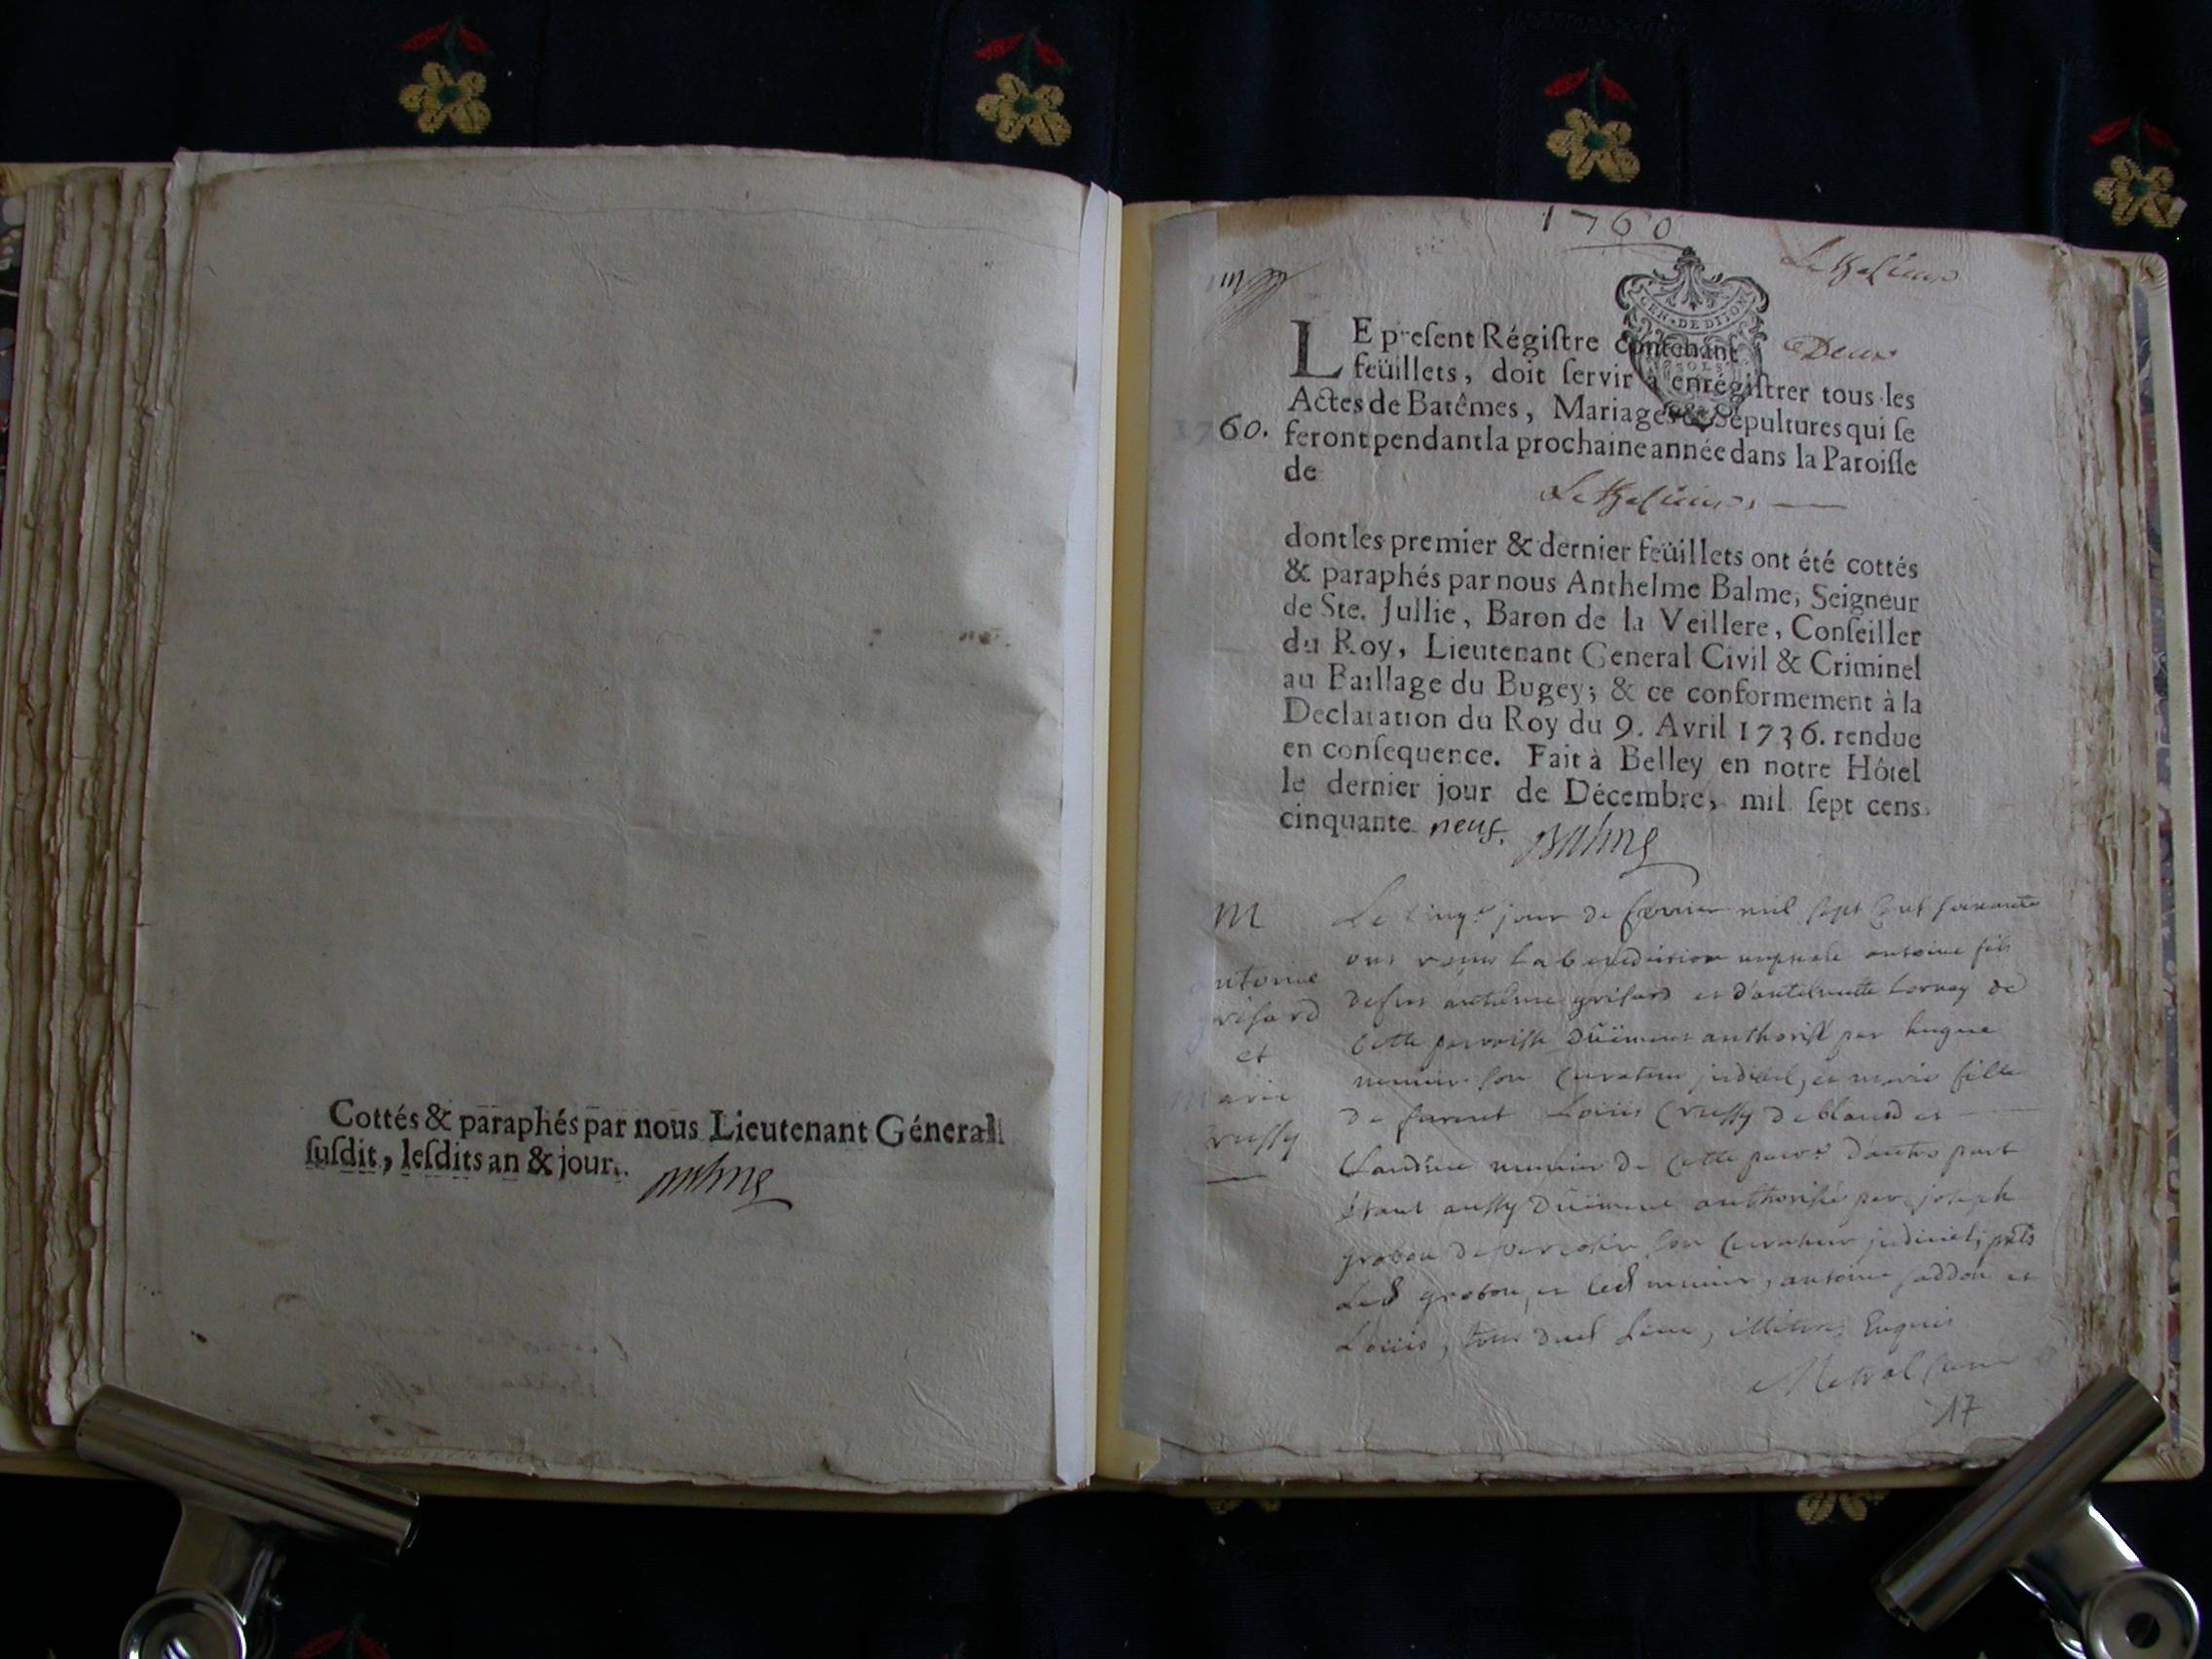 Cottés & paraphés par nous Lieutenant Géneral
susdit, lesdits an & jour.
Balme
1760
GEN · DE DIJON
LE present Régistre contenant Deux
feüillets, doit servir à enrégistrer tous les
Actes de Batêmes, Mariages & Sépultures qui se
1760. feront pendant la prochaine année dans la Paroisse
de
dont les premier & dernier feüillets ont été cottés
& paraphés par nous Anthelme Balme, Seigneur
de Ste. Jullie, Baron de la Veillere, Conseiller
du Roy, Lieutenant General Civil & Criminel
au Baillage du Bugey; & ce conformement à la
Declaration du Roy du 9. Avril 1736. rendue
en consequence. Fait à Belley en notre Hôtel
le dernier jour de Décembre, mil sept cens
cinquante neuf. Balme
M
antoine
grisard
et
marie
crussy
Le jour de fevrier mil sept cent soixante
ont reçu la benediction nuptiale antoine fils
de feu anthelme grisard et d'antelmette de
cette parroisse düement authorisé par hugue
munier son curateur judiciel, et marie fille
de Loüis Crussy de et
Claudine munier de cette parr. d'autre part
étant aussy düement authorisée par joseph
grobon de son curateur judiciel; pnts
Led grobon, et led munier, antoine et
Loüis, tous dud Lieu, illitere Enquis
Metral Curé
17